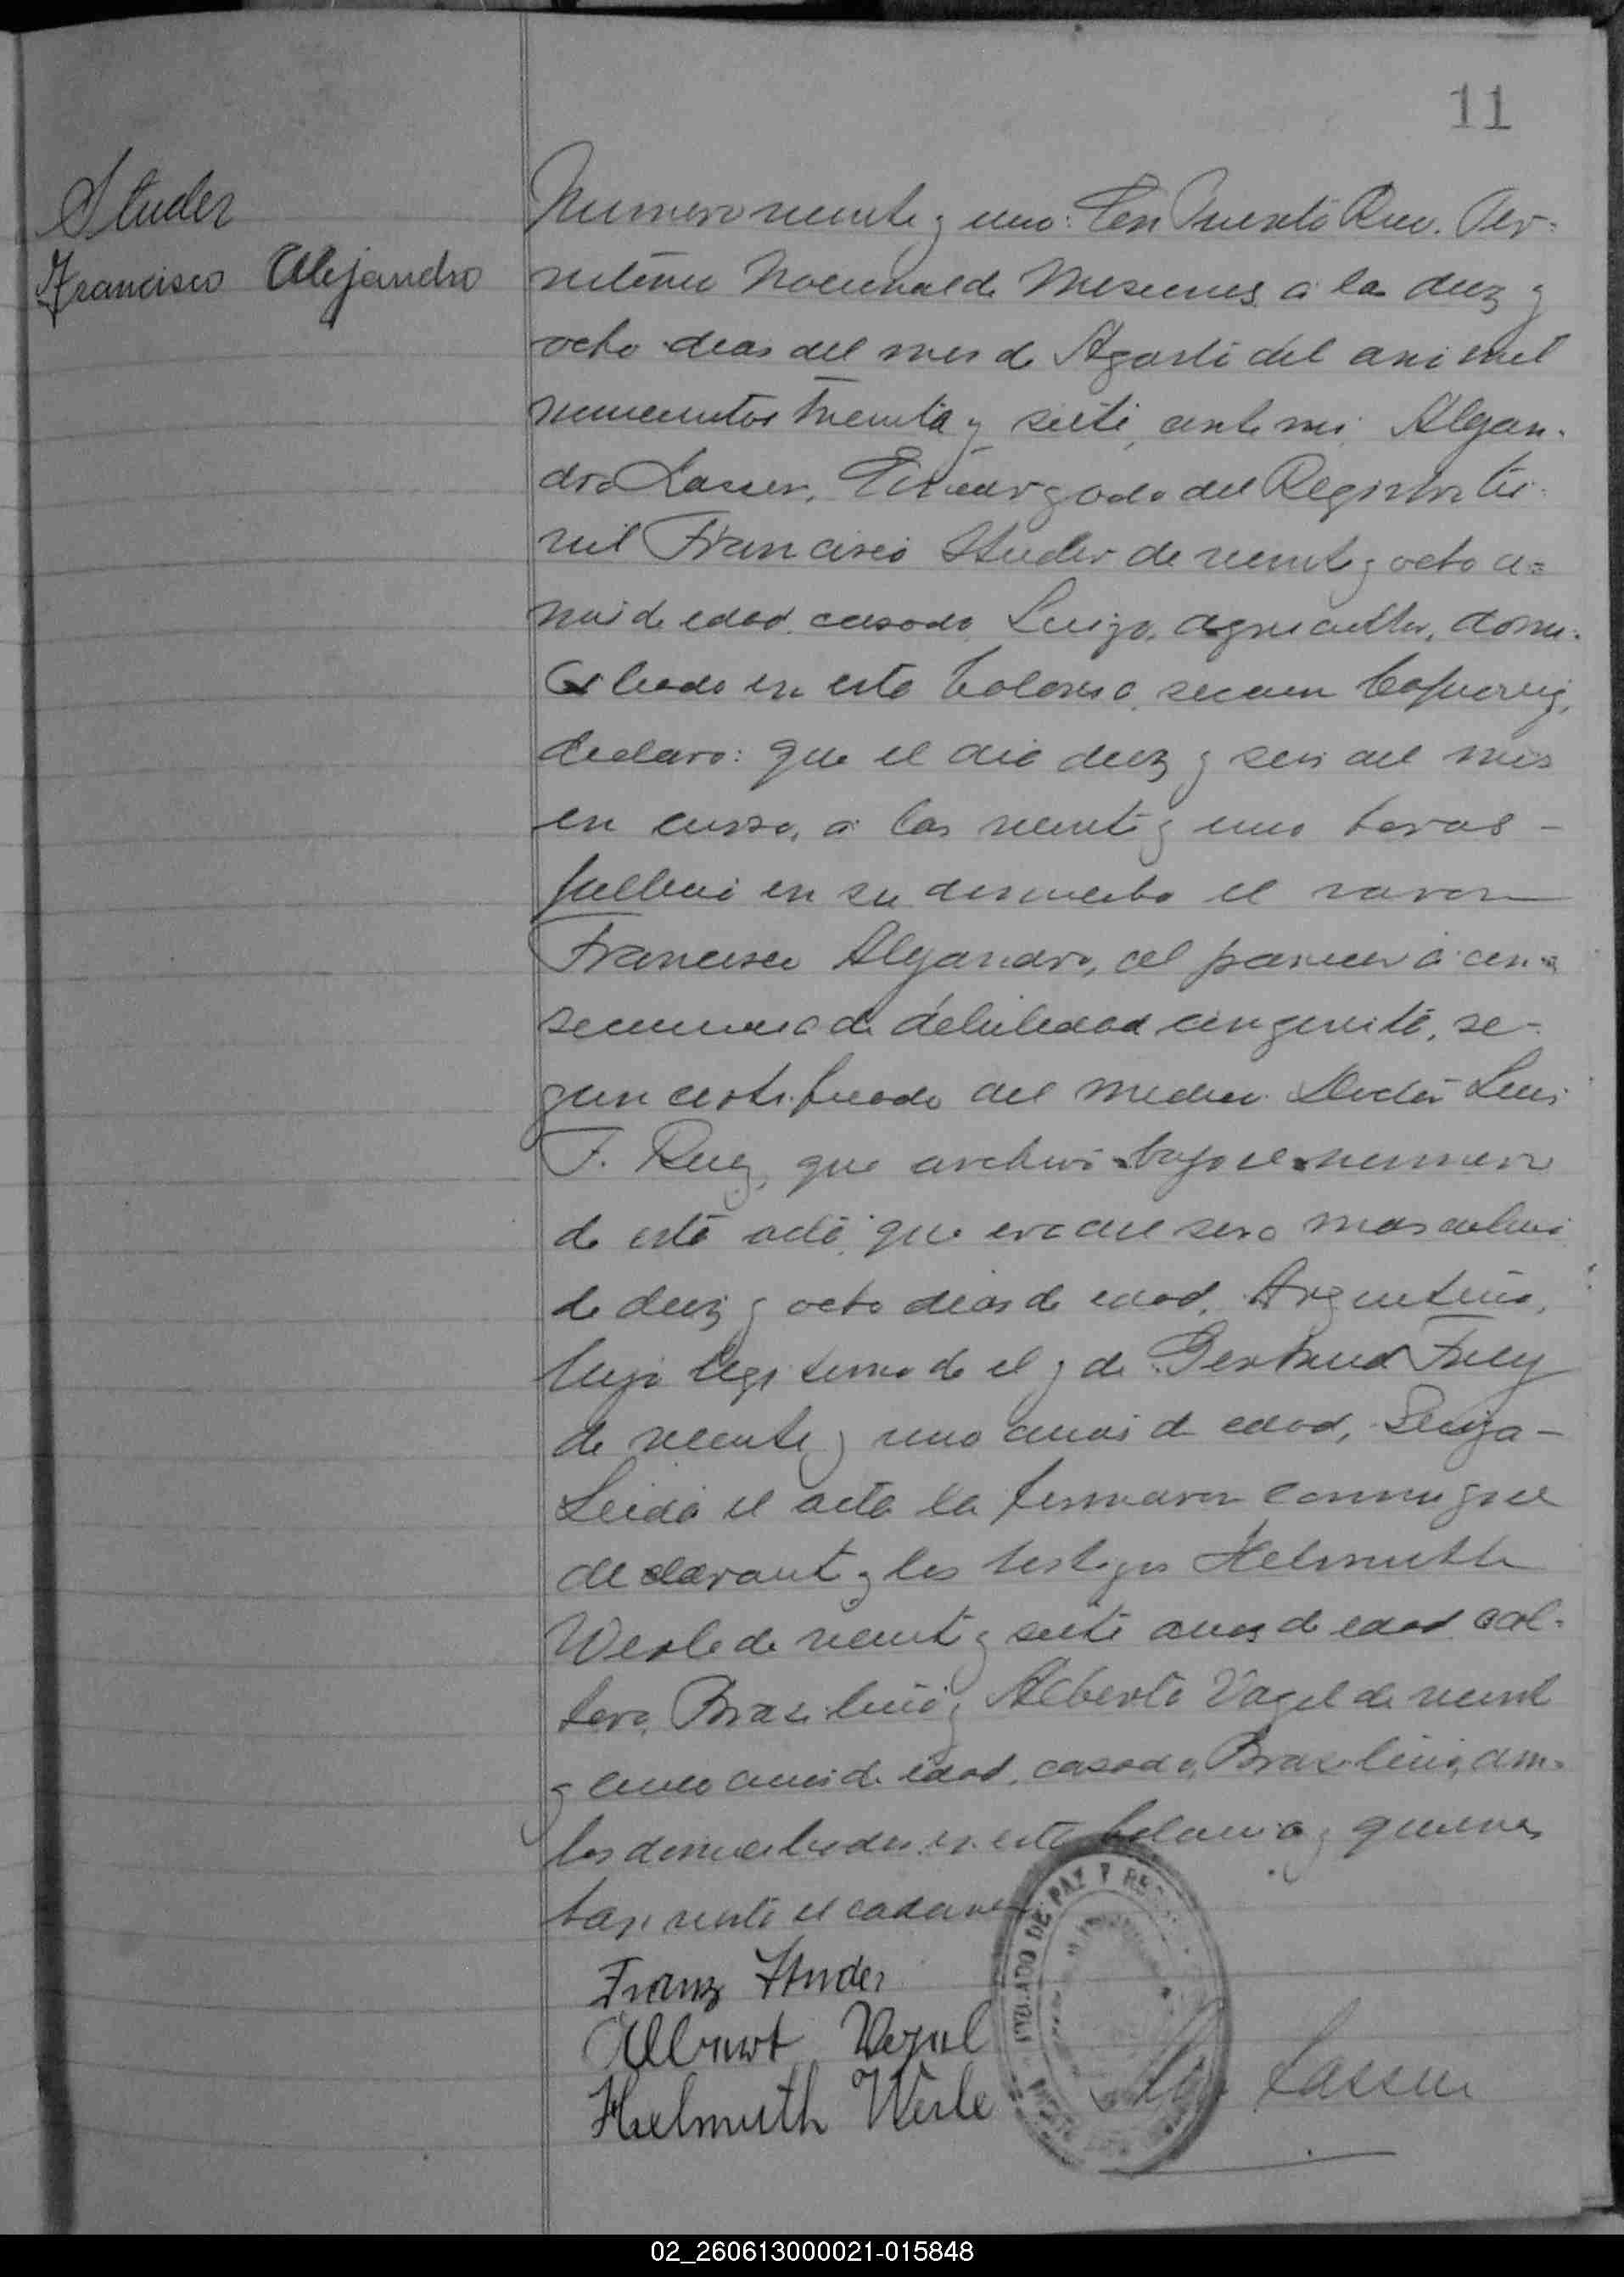 11
Studer
Francisco Alejandro
Numero veinte y uno: En Puerto Rico. Ter-
ritorio Nacional de Misiones, a los diez y
ocho dias del mes de Agosto del ano mil
novecientos treinta y siete, ante mi, Alejan-
dro Lasser, Encargado del Registro Ci-
vil Francisco Studer de veinte y ocho a=
nos de edad, casado, Suizo, agricultor, domi-
ciliado en esta Colonia, seccion
declaro: que el dia diez y seis del mes
en curso, a las veinte y una horas -
fallecio en su domicilio el varon
Francisco Alejandro, al parecer a con=
secuencia de debilidad congenita, se-
gun certificado del medico Doctor Luis
F. Ruiz, que archivo bajo el numero
de esta acta, que era del sexo masculino
de diez y ocho dias de edad, Argentino,
hijo legitimo de el y de Gertrud Frey
de veinte y uno anos de edad, Suiza -
Leida el acta la firmaron conmigo el
declarante y los testigos Helmuth
Werle de veinte y siete anos de edad sol-
tero, Brazileno y Alberto Vogel de veinte
y cinco anos de edad, casado, Brazileno, am-
bos domiciliados en esta Colonia y quienes
han visto el cadaver
Franz Studer
Albert Vogel
Helmuth Werle
JUZGADO DE PAZ Y
Lasser
02_260613000021-015848